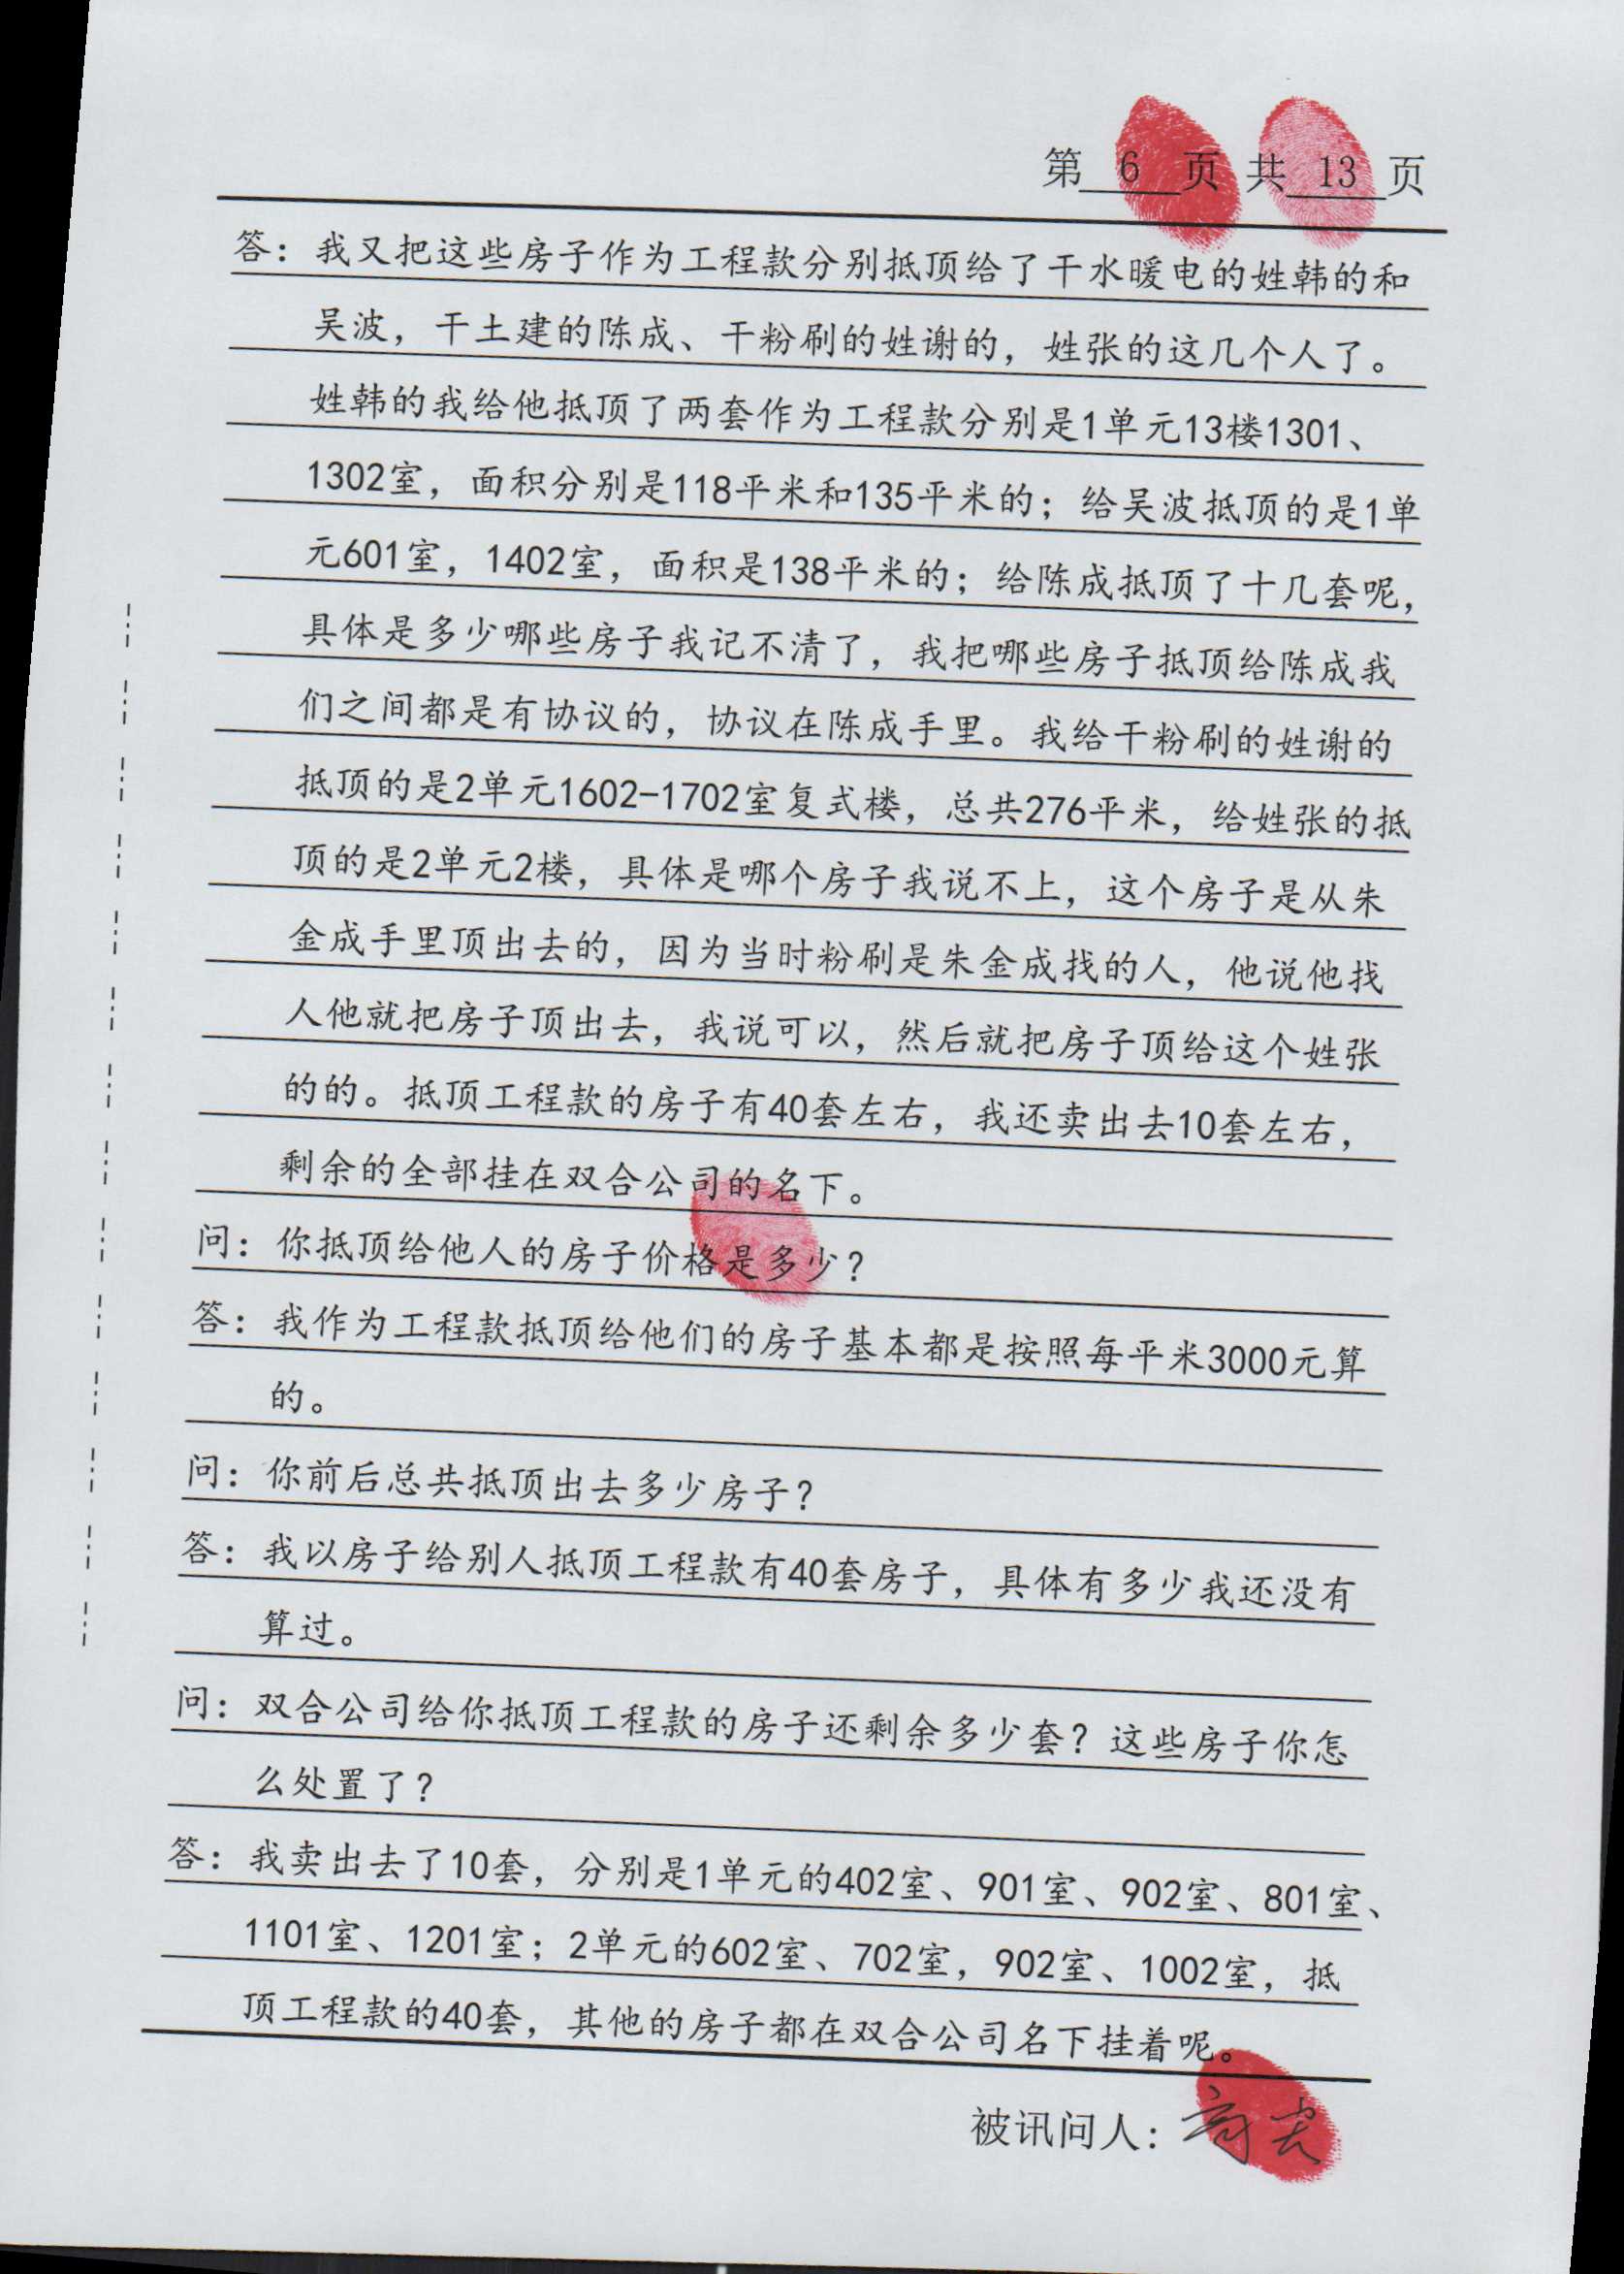 第 6 页 共 13 页
答：我又把这些房子作为工程款分别抵顶给了干水暖电的姓韩的和
吴波，干土建的陈成、干粉刷的姓谢的，姓张的这几个人了。
姓韩的我给他抵顶了两套作为工程款分别是1单元13楼1301、
1302室，面积分别是118平米和135平米的；给吴波抵顶的是1单
元601室，1402室，面积是138平米的；给陈成抵顶了十几套呢，
具体是多少哪些房子我记不清了，我把哪些房子抵顶给陈成我
们之间都是有协议的，协议在陈成手里。我给干粉刷的姓谢的
抵顶的是2单元1602-1702室复式楼，总共276平米，给姓张的抵
顶的是2单元2楼，具体是哪个房子我说不上，这个房子是从朱
金成手里顶出去的，因为当时粉刷是朱金成找的人，他说他找
人他就把房子顶出去，我说可以，然后就把房子顶给这个姓张
的的。抵顶工程款的房子有40套左右，我还卖出去10套左右，
剩余的全部挂在双合公司的名下。
问：你抵顶给他人的房子价格是多少？
答：我作为工程款抵顶给他们的房子基本都是按照每平米3000元算
的。
问：你前后总共抵顶出去多少房子？
答：我以房子给别人抵顶工程款有40套房子，具体有多少我还没有
算过。
问：双合公司给你抵顶工程款的房子还剩余多少套？这些房子你怎
么处置了？
答：我卖出去了10套，分别是1单元的402室、901室、902室、801室、
1101室、1201室；2单元的602室、702室，902室、1002室，抵
顶工程款的40套，其他的房子都在双合公司名下挂着呢。
被讯问人：